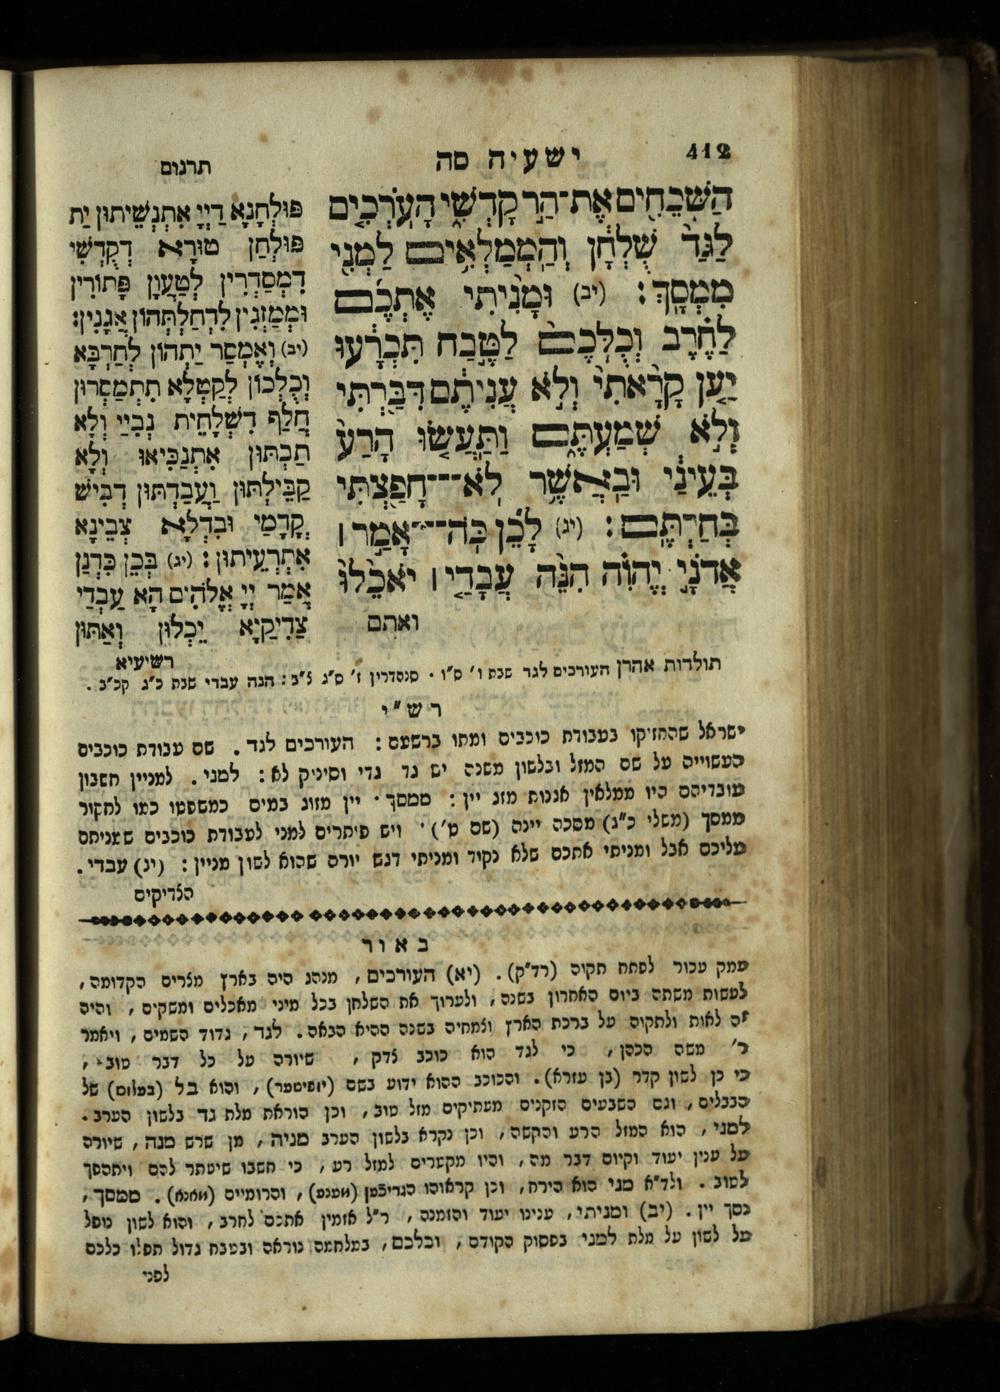 412
ישעיה סה
תרגום
הַשְּׁכֵחִים אֶת־הַר קָדְשִׁי הָעֹרְכִים
לַגַּד שֻׁלְחָן וְהַמְמַלְאִים לַמְנִי
מִמְסָךְ׃ (יב) וּמָנִיתִי אֶתְכֶם
לַחֶרֶב וְכֻלְּכֶם לַטֶּבַח תִּכְרָעוּ
יַעַן קָרָאתִי וְלֹא עֲנִיתֶם דִּבַּרְתִּי
וְלֹא שְׁמַעְתֶּם וַתַּעֲשׂוּ הָרַע
בְּעֵינַי וּבַאֲשֶׁר לֹא־חָפַצְתִּי
בְּחַרְתֶּם׃ (יג) לָכֵן כֹּה־אָמַר ׀
אֲדֹנָי יֱהֹוִה הִנֵּה עֲבָדַי ׀ יֹאכֵלוּ
ואתם
פּוּלְחָנָא דַיְיָ אִתְנְשֵׁיתוּן יַת
פּוּלְחַן טוּרָא דְקֻדְשִׁי
דִמְסַדְּרִין לְטַעֲוָן פָּתוֹרִין
וּמְמַזְגִין לְדַחְלַתְהוֹן אֲגָנִין׃
(יב) וְאֶמְסַר יַתְהוֹן לְחַרְבָּא
וְכֻלְּכוֹן לְקַטְלָא תִתְמַסְרוּן
חֲלַף דִּשְׁלָחֵית נְבִיַּי וְלָא
תַבְתּוּן אִתְנַבִּיאוּ וְלָא
קַבֵּילְתּוּן וַעֲבַדְתּוּן דְּבִישׁ
קֳדָמַי וּבִדְלָא צְבֵינָא
אִתְרְעֵיתוּן׃ (יג) בְּכֵן כִּדְנַן
אֲמַר יְיָ אֱלֹהִים הָא עַבְדַי
צַדִיקַיָא יֵכְלוּן וְאַתּוּן
רשיעיא
תולדות אהרן העורכים לגד שבת ו' ס"ו . סנהדרין ז' ס"ג צ"ב : הנה עבדי שבת כ"ג קכ"ב .
רש"י
ישראל שהחזיקו בעבודת כוכבים ומתו ברשעם : העורכים לגד . שם עבודת כוכבים
העשוייה על שם המזל ובלשון משנה יש גד גדי וסינוק לא : למני . למניין חשבון
עובדיהם היו ממלאין אגנות מזג יין : ממסך . יין מזוג במים כמשפטו כמו לחקור
ממסך (משלי כ"ג) מסכה יינה (שם ט') . ויש פותרים למני לעבודת כוכבים שמניתם
עליכם אבל ומניתי אתכם שלא נקוד ומניתי דגש יורה שהוא לשון מניין : (יג) עבדי .
הצדיקים
באור
עמק עכור לפתח תקוה (רד"ק) . (יא) העורכים , מנהג היה בארץ מצרים הקדומה ,
לעשות משתה ביום האחרון בשנה , ולערוך את השלחן בכל מיני מאכלים ומשקים , והיה
זה לאות ולתקוה על ברכת הארץ וצמחיה בשנה ההיא הבאה . לגד , גדוד השמים , ויאמר
ר' משה הכהן , כי לגד הוא כוכב צדק , שיורה על כל דבר טוב ,
כי כן לשון קדר (בן עזרא) . והכוכב ההוא ידוע בשם (יופיטער) , והוא בל (בעלוס) של
הבבליים , וגם השבעים הזקנים מעתיקים מזל טוב , וכן הוראת מלת גד בלשון הערב .
למני , הוא המזל הרע והקשה , וכן נקרא בלשון הערב מניה , מן שרש מנה , שיורה
על ענין יעוד וקיום דבר מה , והיו מקטרים למזל רע , כי חשבו שיעתר להם ויתהפך
לטוב . ולד"א מני הוא הירח , וכן קראוהו הגריכען (מענע) , והרומיים (מאנא) . ממסך ,
נסך יין . (יב) ומניתי , ענינו יעוד והזמנה , ר"ל אזמין אתכם לחרב , והוא לשון נופל
על לשון על מלת למני בפסוק הקודם , וכלכם , במלחמה נוראה ובטבח גדול תפלו כלכם
לפני